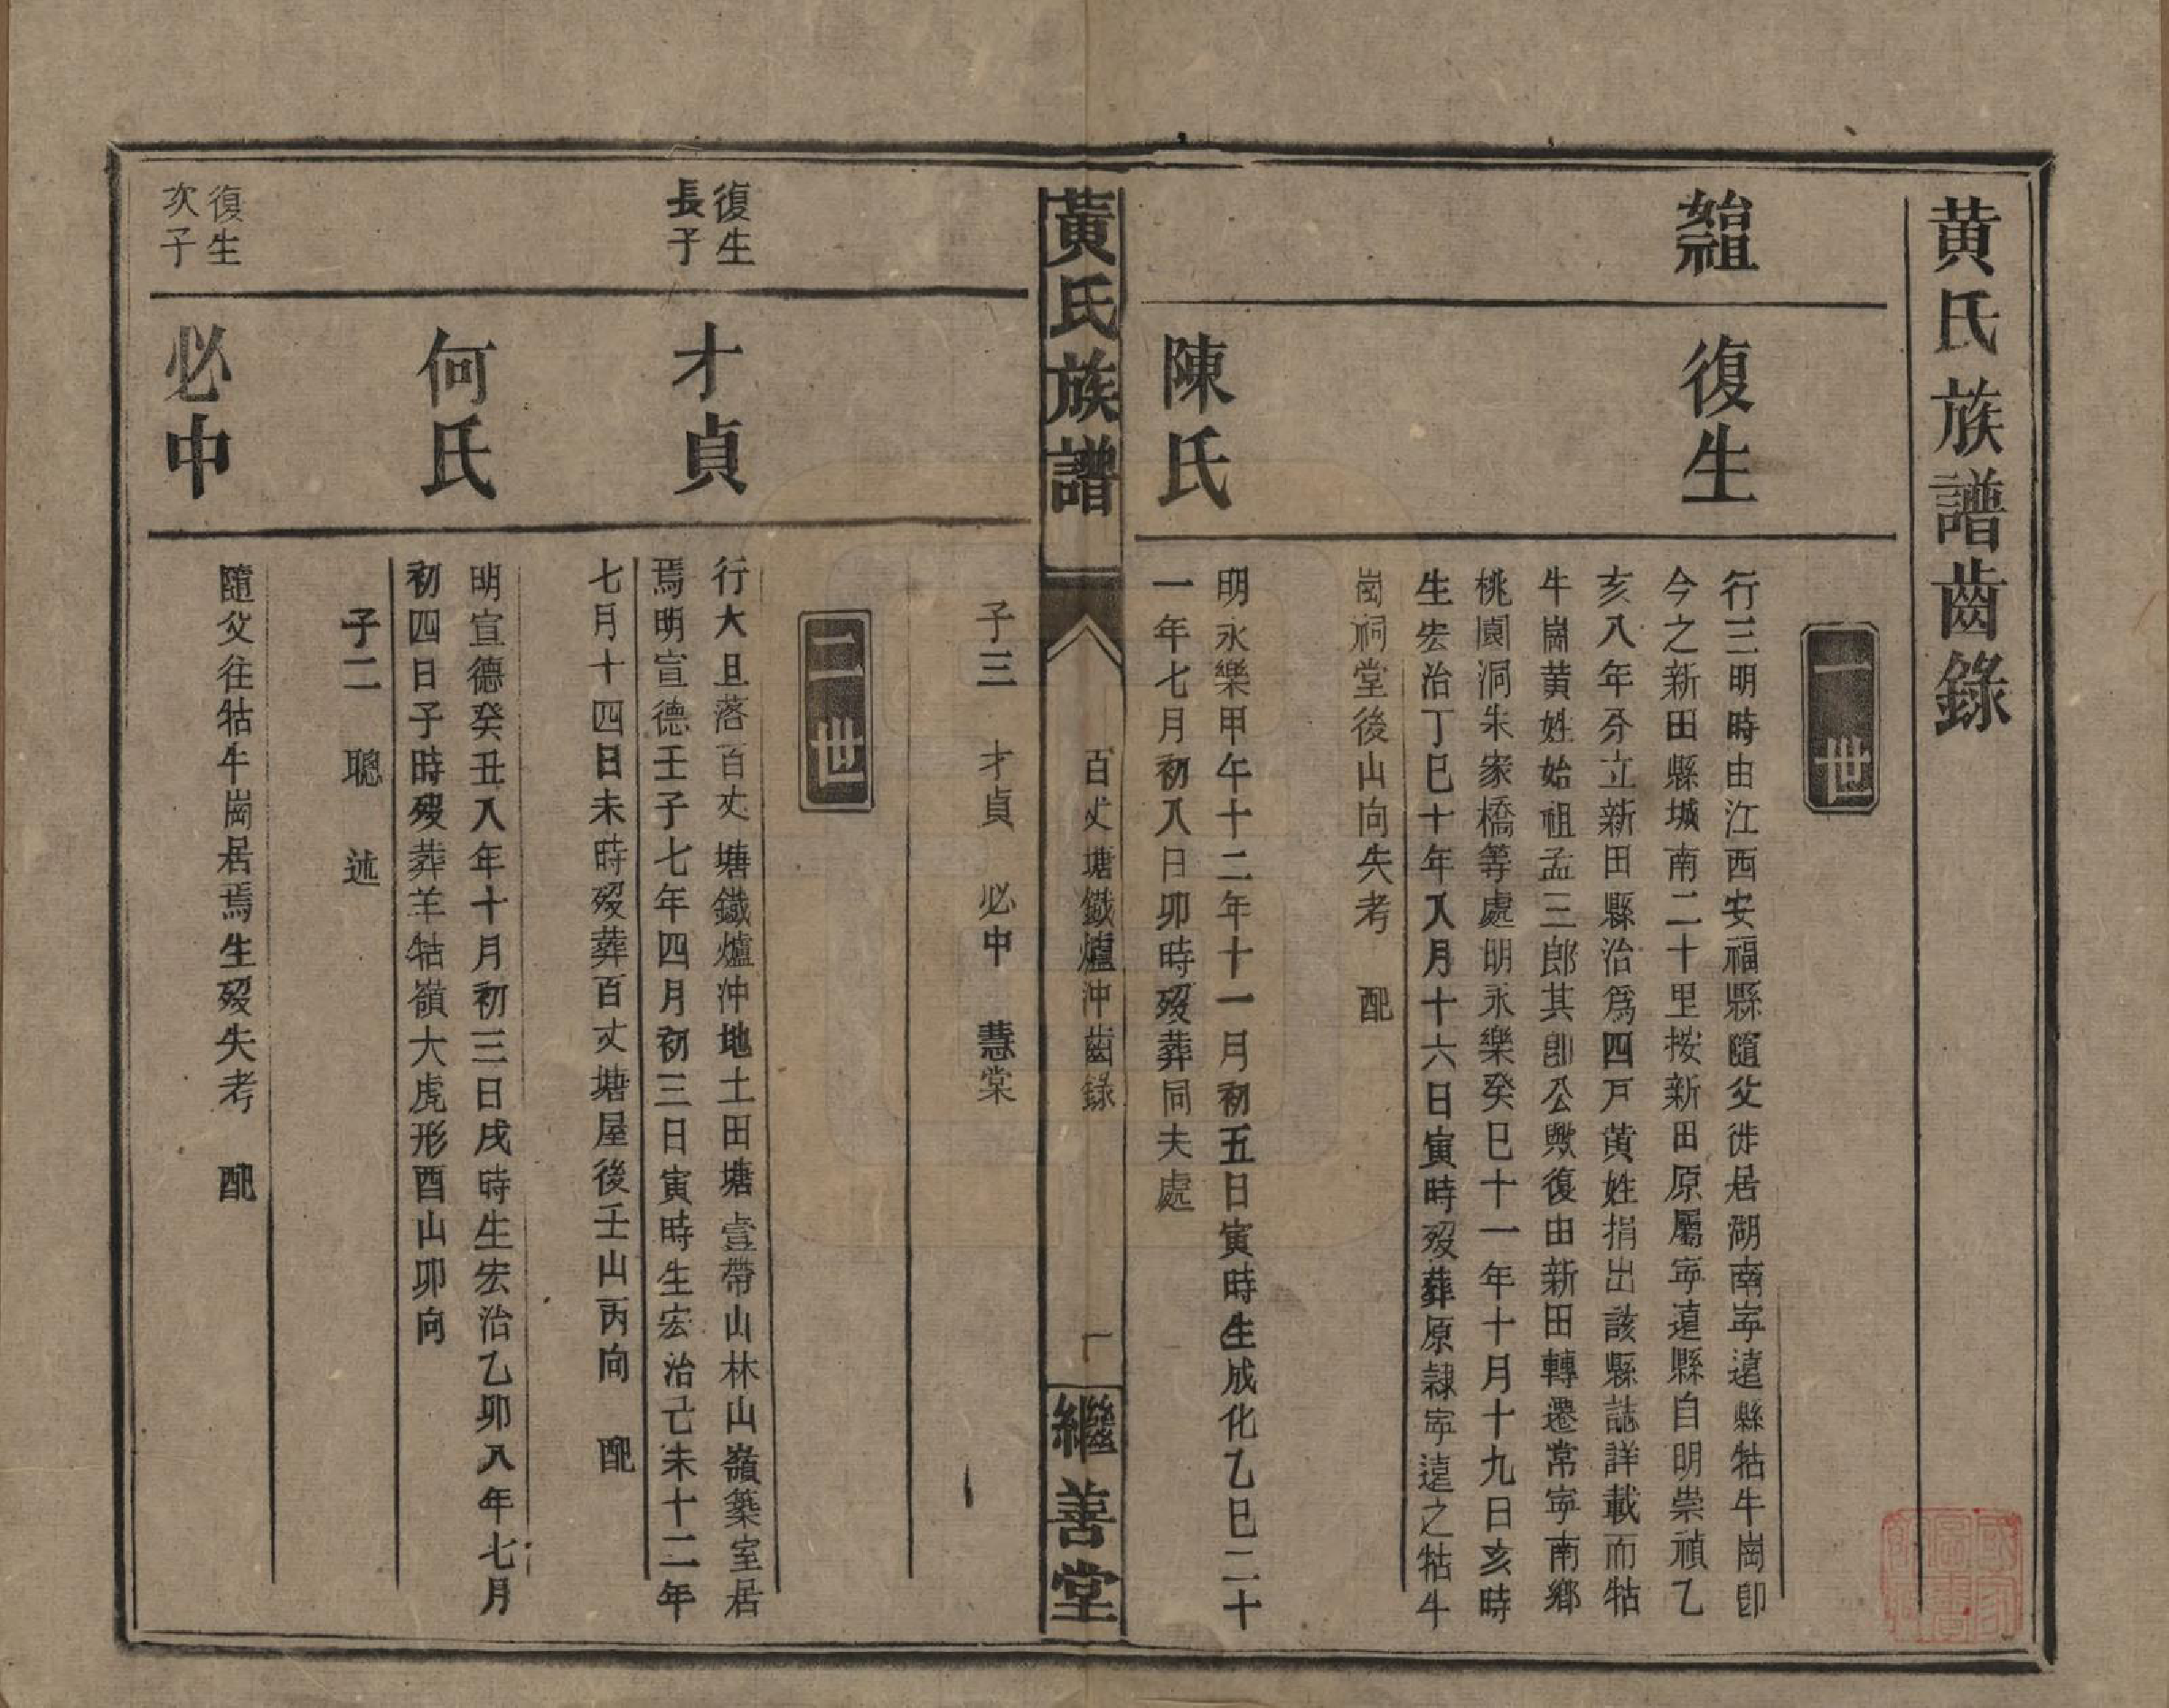 黄氏族譜齒錄
一世
始祖
復生
行三明時由江西安福縣隨父徙居湖南寕遠縣牯牛崗卽
今之新田縣城南二十里按新田原屬寕遠縣自明崇禎乙
亥八年分立新田縣治爲四戸黄姓捐出該縣誌詳載而牯
牛崗黄姓始祖孟三郎其卽公歟復由新田轉遷常寕南鄉
桃園洞朱家橋等處明永樂癸巳十一年十月十九日亥時
生宏治丁巳十年八月十六日寅時歿葬原隷寕遠之牯牛
崗祠堂後山向失考　配
陳氏
明永樂甲午十二年十一月初五日寅時生成化乙巳二十
一年七月初八日卯時歿葬同夫處
黄氏族譜
百丈塘鐵爐沖齒錄
一
繼善堂
子三　才貞　必中　慧棠
二世
復生
長子
才貞
行大旦落百丈塘鐵爐沖地土田塘壹帶山林山嶺築室居
焉明宣德壬子七年四月初三日寅時生宏治己未十二年
七月十四日未時歿葬百丈塘屋後壬山丙向　配
何氏
明宣德癸丑八年十月初三日戌時生宏治乙卯八年七月
初四日子時歿葬羊牯嶺大虎形酉山卯向
子二　聰　述
復生
次子
必中
隨父往牯牛崗居焉生歿失考　配